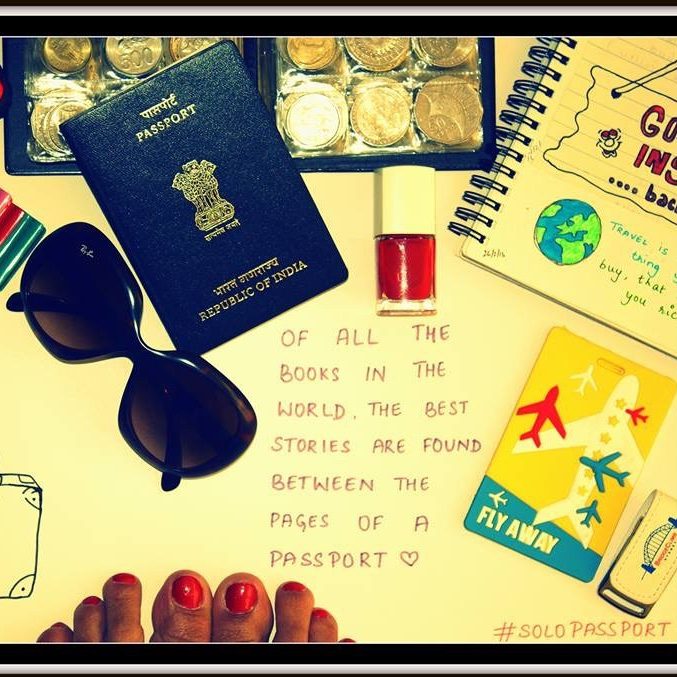 पासपोर्ट
PASSPORT
सत्यमेव जयते
भारत गणराज्य
REPUBLIC OF INDIA
Ray-Ban
500
GO
INS
.... back
26/2/16
TRAVEL is
thing y
buy, that
you ric
OF ALL THE
BOOKS IN THE
WORLD, THE BEST
STORIES ARE FOUND
BETWEEN THE
PAGES OF A
PASSPORT ♡
FLY AWAY
#SOLOPASSPORT